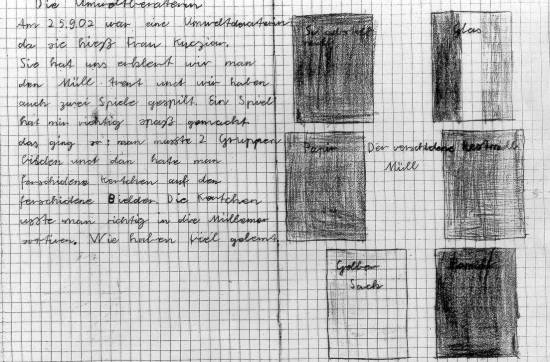 Die Umweltberaterin
Am 25.9.02 war eine Umweltberaterin
da sie hieß Frau
Sie hat uns erkleart wir man
den Müll trent und wir haben
auch zwei Spiele gespilt. Ein Spiel
hat mir richtig spaß gemacht
das ging so: man musste 2 Gruppen
bilden und dan hate man
ferschidene Kertchen auf den
ferschidene Bielder. Die Kertchen
usste man richtig in die Mülleimer
sortiren. Wie haben viel gelernt.
Schadstoff
Glas
Papier
Der verschidene Restmüll
Müll
Gelber
Sack